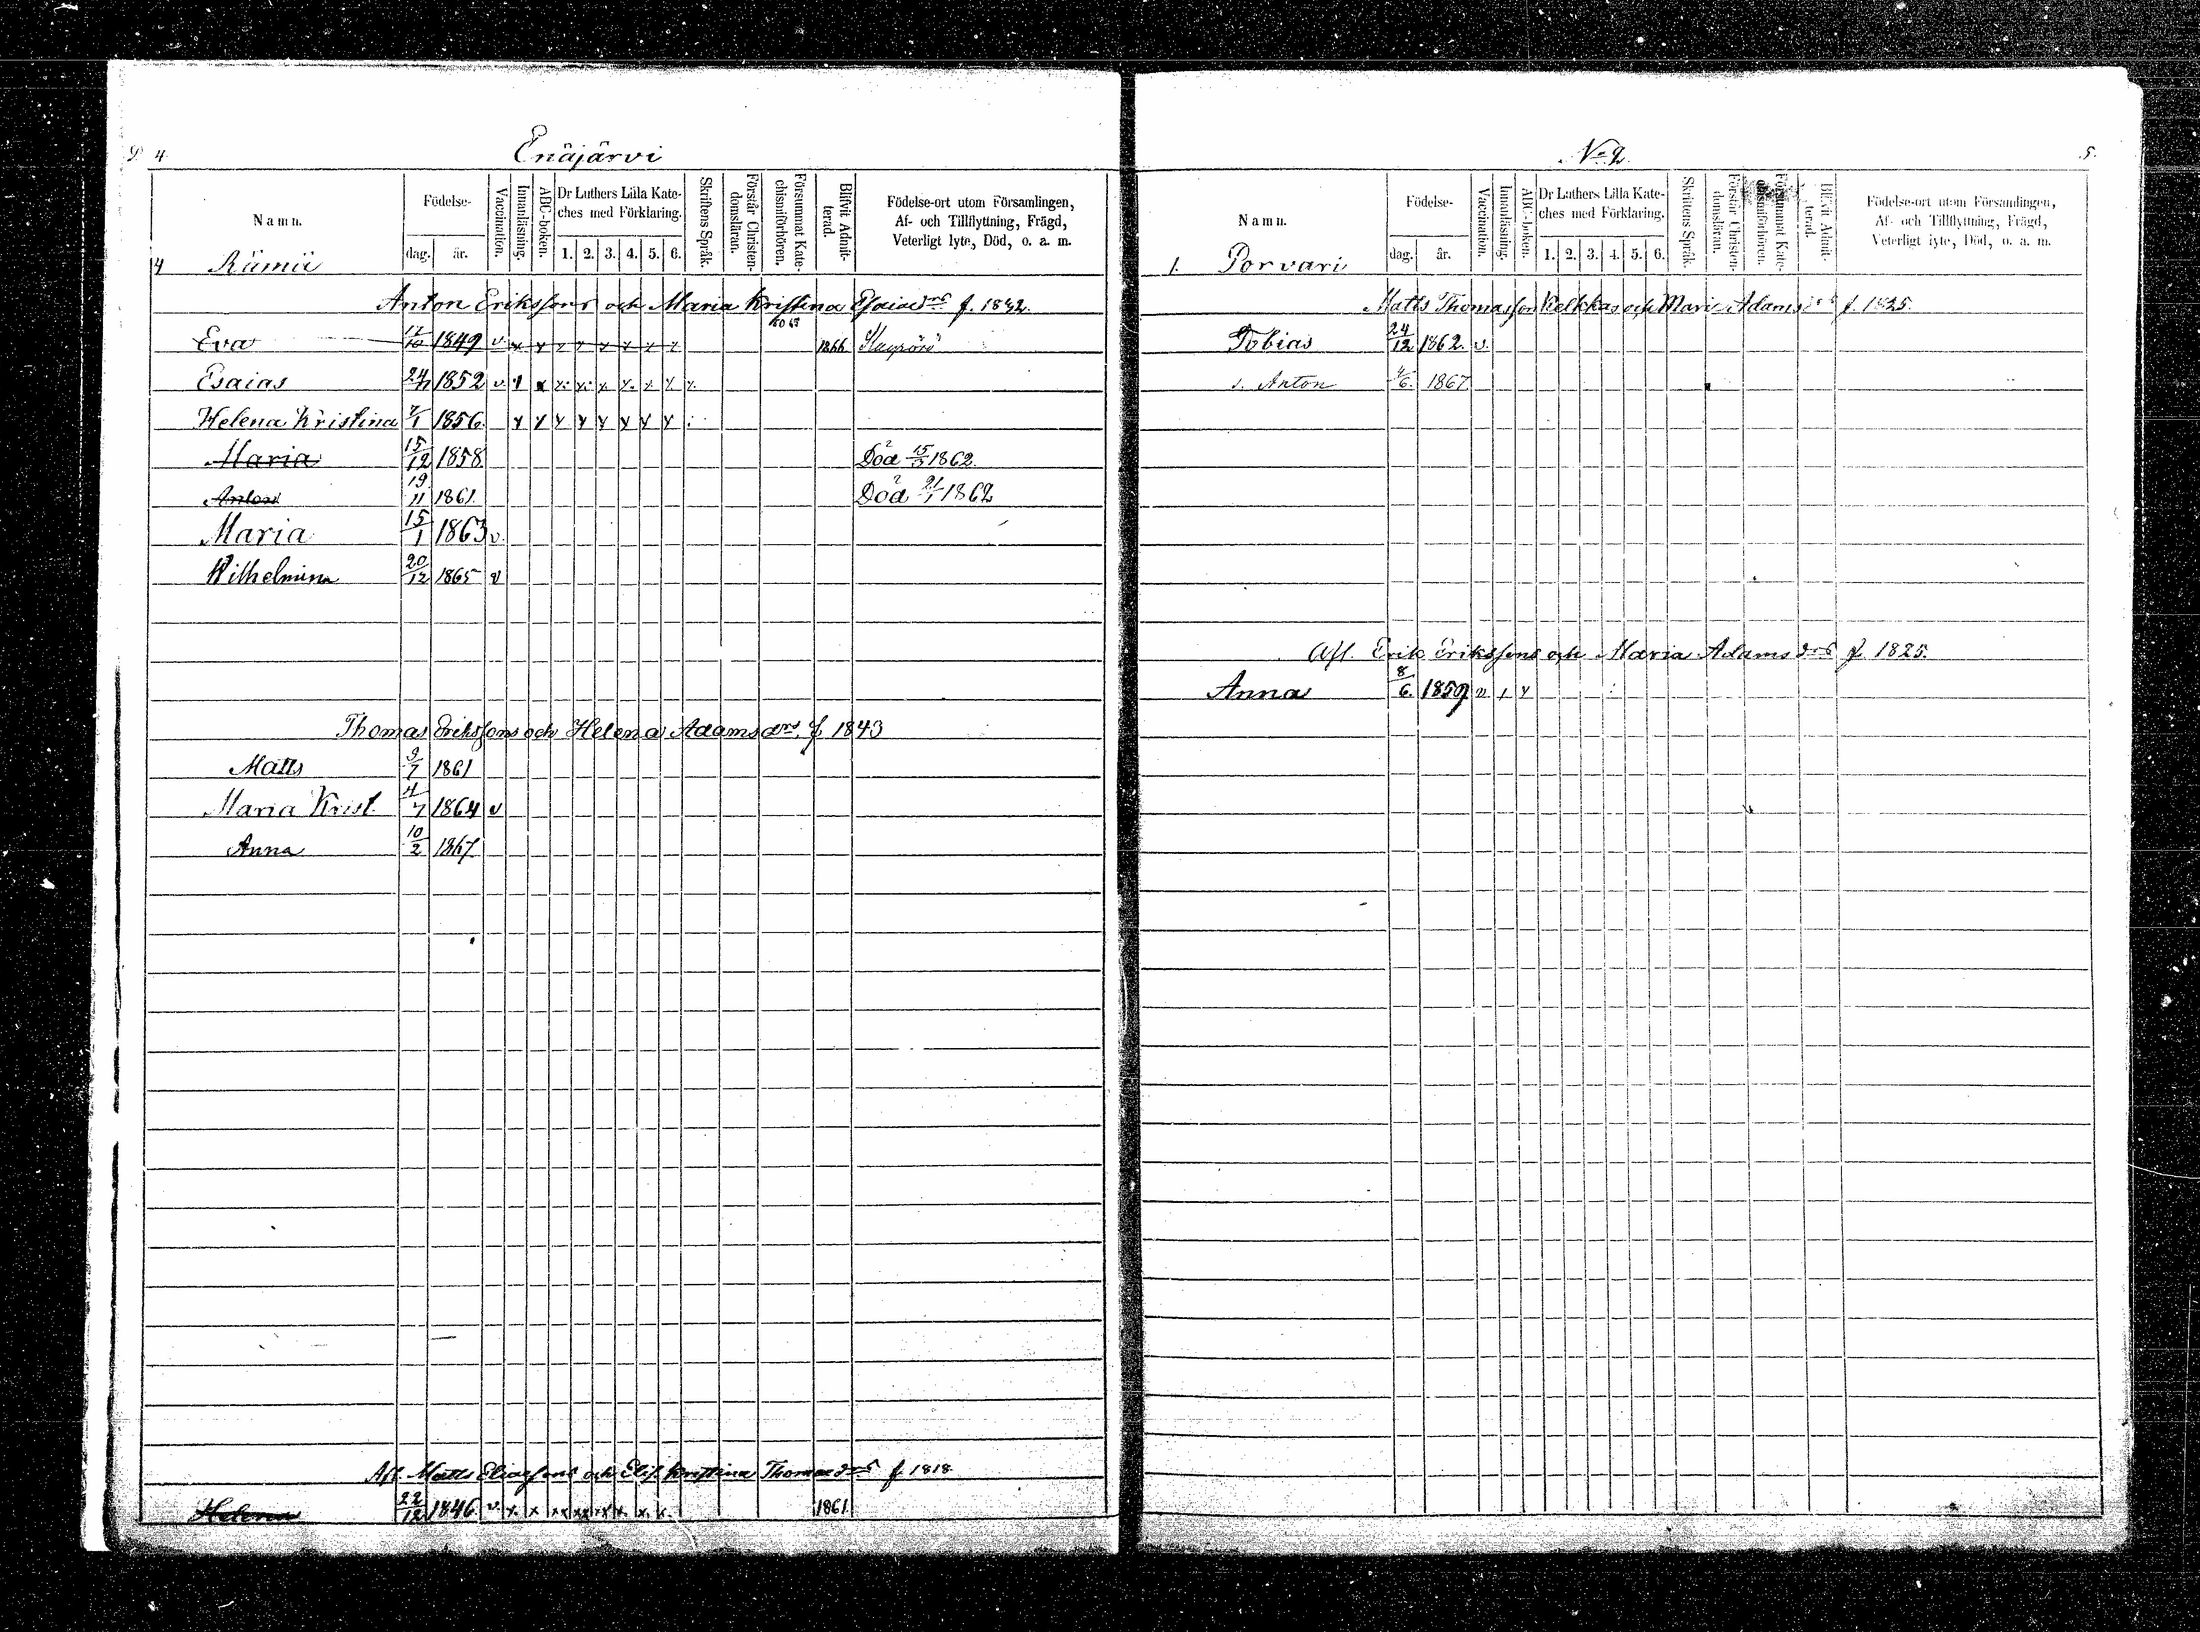 4.
Enäjärvi
Namn.
Födelse-
dag. år.
Vaccination.
Innanläsning.
ABC-boken.
Dr Luthers Lilla Kate-
ches med Förklaring.
1. 2. 3. 4. 5. 6.
Skriftens Språk.
Förstår Christen-
domsläran.
Försummat Kate-
chismiförhören.
Blifvit Admit-
terad.
Födelse-ort utom Församlingen,
Af- och Tillflyttning, Frägd,
Veterligt lyte, Död, o. a. m.
4 Rämii
Anton Erikssons och Maria Kristina Esaiedrs f. 1832.
Eva 1849 v. x x x x x x x x 1866
Esaias 1852 v x x x x x x x x x
Helena Kristina 1856. x x x x x x x x
Maria 15/12 1858. Död 1862.
Anton 19/11 1861. Död 21/1 1862
Maria 15/1 1863 v.
Wilhelmina 20/12 1865 v
Thomas Erikssons och Helena Adamsdrs. f 1843
Matts 9/7 1861
Maria Krist. 4/7 1864 v
Anna 10/2 1867.
Afl. Matts Eliassons och Elis. Kristina Thomasdrs f. 1818
Helena 22/12 1846. v. x. x xx xx xx x. x. x. 1861.
No 2.
5.
Namn.
Födelse-
dag. år.
Vaccination.
Innanläsning.
ABC-boken.
Dr Luthers Lilla Kate-
ches med Förklaring.
1. 2. 3. 4. 5. 6.
Skriftens Språk.
Förstår Christen-
domsläran.
Försummat Kate-
chismiförhören.
Blifvit Admit-
terad.
Födelse-ort utom Församlingen,
Af- och Tillflyttning, Frägd,
Veterligt lyte, Död, o. a. m.
1. Porvari
Matts Thomasson Kelkkas och Maria Adamsdrs f. 1825.
Tobias 24/12 1862. v.
s. Anton 1867
Afl. Erik Erikssons och Maria Adamsdrs f. 1825.
Anna 8/6. 1859 v x x